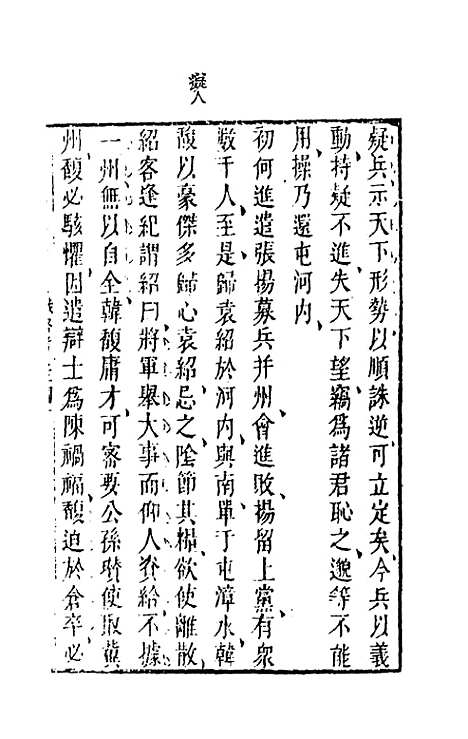 擬入
疑兵示天下形勢以順誅逆可立定矣今兵以義
動持疑不進失天下望竊爲諸君恥之邈等不能
用操乃還屯河內
初何進遣張揚募兵并州會進敗揚留上黨有衆
數千人至是歸袁紹於河內與南單于屯漳水韓
馥以豪傑多歸心袁紹忌之陰節其糧欲使離散
紹客逢紀謂紹曰將軍舉大事而仰人資給不據
一州無以自全韓馥庸才可密要公孫瓚使取冀
州馥必駭懼因遣辯士爲陳禍福馥迫於倉卒必